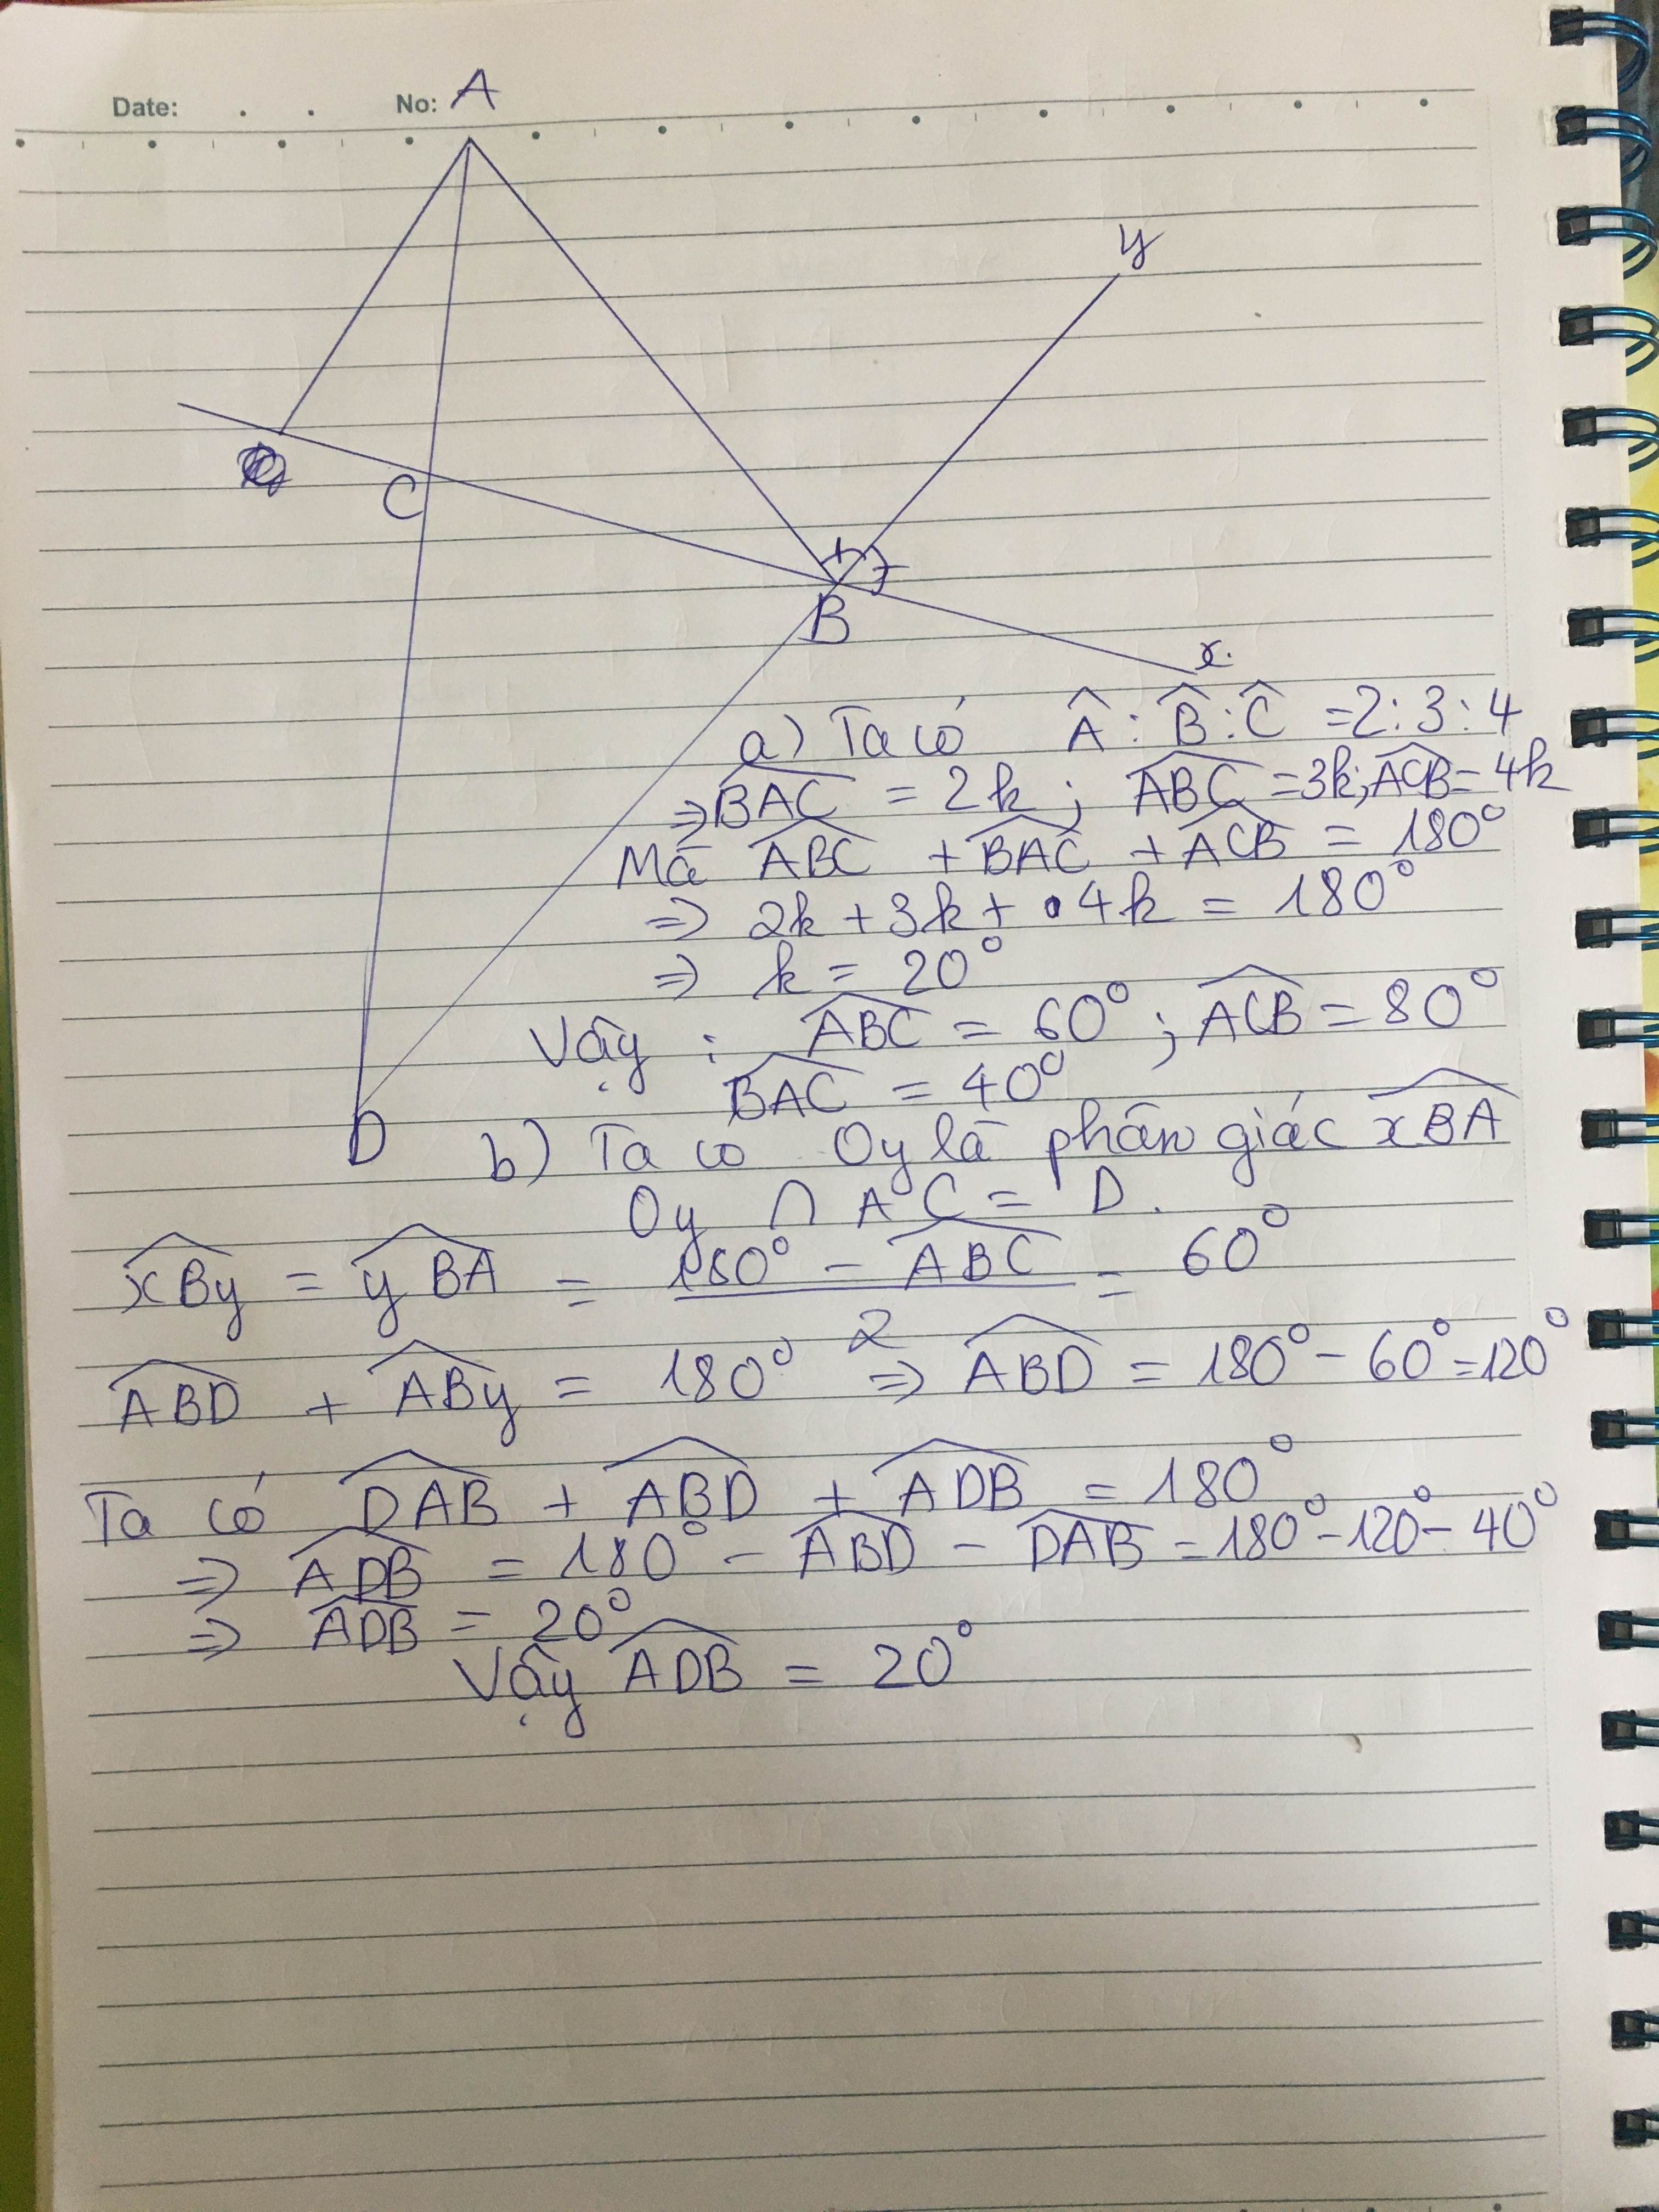 Date: . . No: A
y
C
B
x
D
a) Ta có Â : B̂ : Ĉ = 2 : 3 : 4
⇒ \widehat{BAC} = 2k ; \widehat{ABC} = 3k; \widehat{ACB} = 4k
Mà \widehat{ABC} + \widehat{BAC} + \widehat{ACB} = 180°
⇒ 2k + 3k + 4k = 180°
⇒ k = 20°
Vậy : \widehat{ABC} = 60° ; \widehat{ACB} = 80°
\widehat{BAC} = 40°
b) Ta có Oy là phân giác \widehat{xBA}
Oy ∩ AC = D.
\widehat{xBy} = \widehat{yBA} = \frac{180° - \widehat{ABC}}{2} = 60°
\widehat{ABD} + \widehat{ABy} = 180° ⇒ \widehat{ABD} = 180° - 60° = 120°
Ta có \widehat{DAB} + \widehat{ABD} + \widehat{ADB} = 180°
⇒ \widehat{ADB} = 180° - \widehat{ABD} - \widehat{DAB} = 180° - 120° - 40°
⇒ \widehat{ADB} = 20°
Vậy \widehat{ADB} = 20°